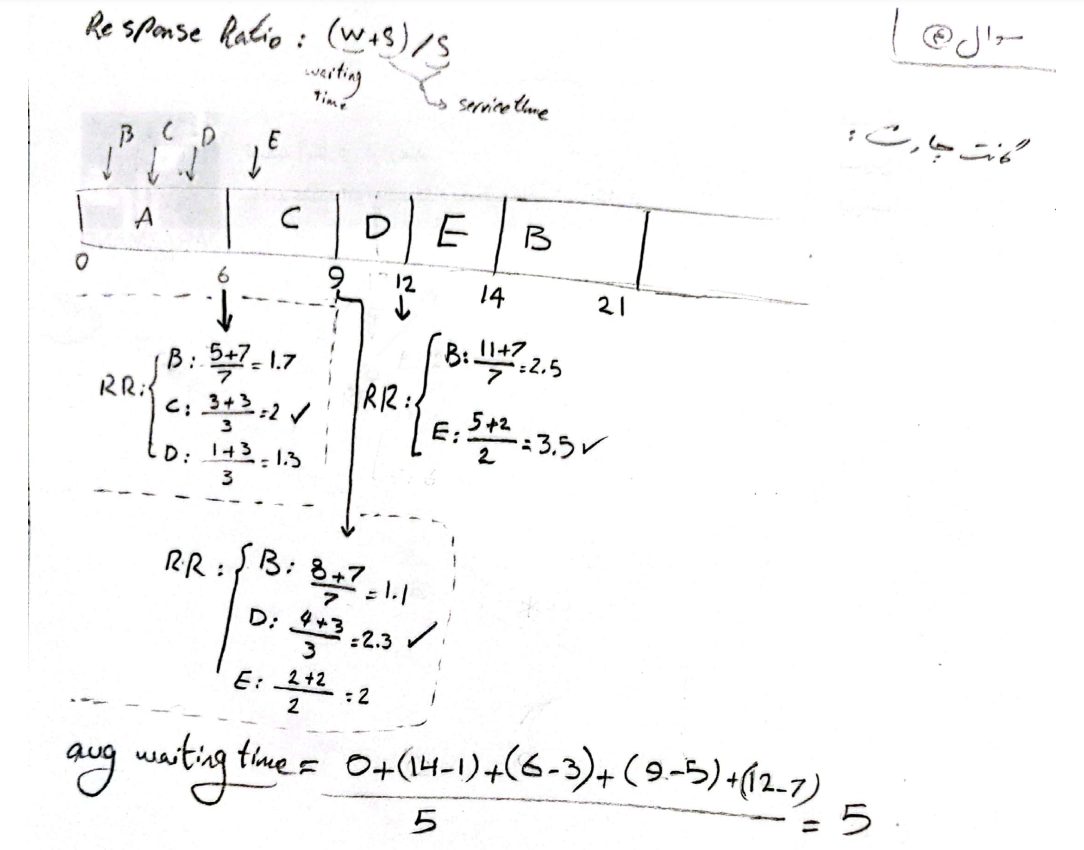 Response Ratio : (w+S)/S
سوال ④
waiting time
service time
گانت چارت :
B C D E
A C D E B
0 6 9 12 14 21
RR: B: 5+7/7 = 1.7
C: 3+3/3 = 2 ✓
D: 1+3/3 = 1.3
RR: B: 11+7/7 = 2.5
E: 5+2/2 = 3.5 ✓
RR: B: 8+7/7 = 1.1
D: 4+3/3 = 2.3 ✓
E: 2+2/2 = 2
avg waiting time = 0+(14-1)+(6-3)+(9-5)+(12-7)/5 = 5